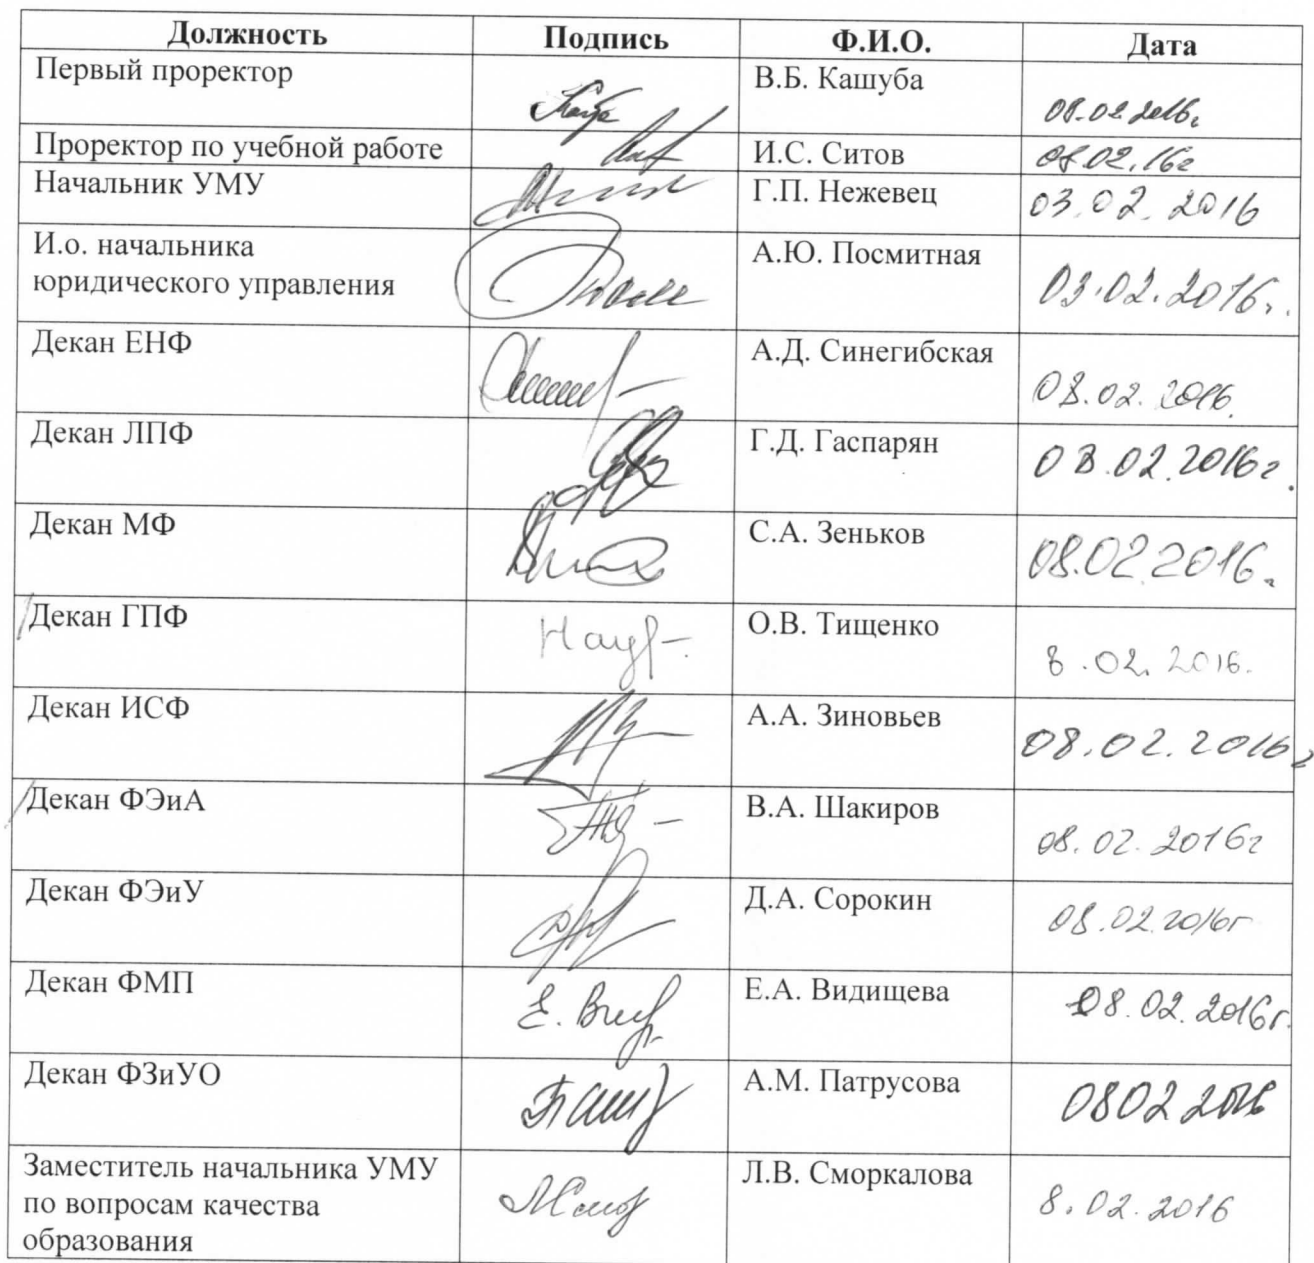 Должность Подпись Ф.И.О. Дата
Первый проректор В.Б. Кашуба 08.02.2016г
Проректор по учебной работе И.С. Ситов 08.02.16г
Начальник УМУ Г.П. Нежевец 03.02.2016
И.о. начальника
юридического управления А.Ю. Посмитная 03.02.2016г.
Декан ЕНФ А.Д. Синегибская 08.02.2016.
Декан ЛПФ Г.Д. Гаспарян 08.02.2016г.
Декан МФ С.А. Зеньков 08.02.2016г.
Декан ГПФ О.В. Тищенко 8.02.2016.
Декан ИСФ А.А. Зиновьев 08.02.2016г
Декан ФЭиА В.А. Шакиров 08.02.2016г
Декан ФЭиУ Д.А. Сорокин 08.02.2016г
Декан ФМП Е.А. Видищева 08.02.2016г.
Декан ФЗиУО А.М. Патрусова 08022016
Заместитель начальника УМУ
по вопросам качества
образования Л.В. Сморкалова 8.02.2016